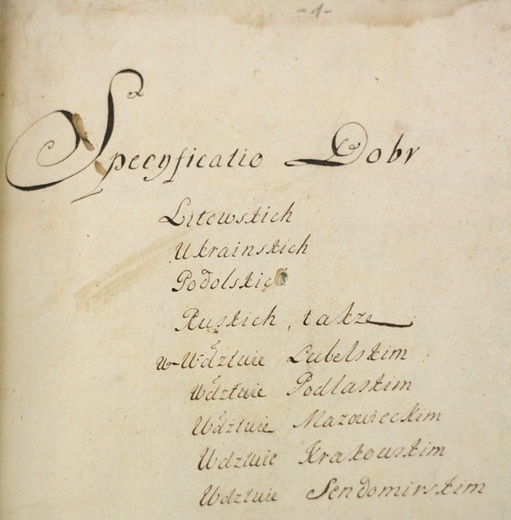 -1-
Specyficatio Dobr
Litewskich
Ukrainskich
Podolskic
Ruskich, takze
w Wdztwie Lubelskim
Wdztwie Podlaskim
Wdztwie Mazowieckim
Wdztwie Krakowskim
Wdztwie Sendomirskim